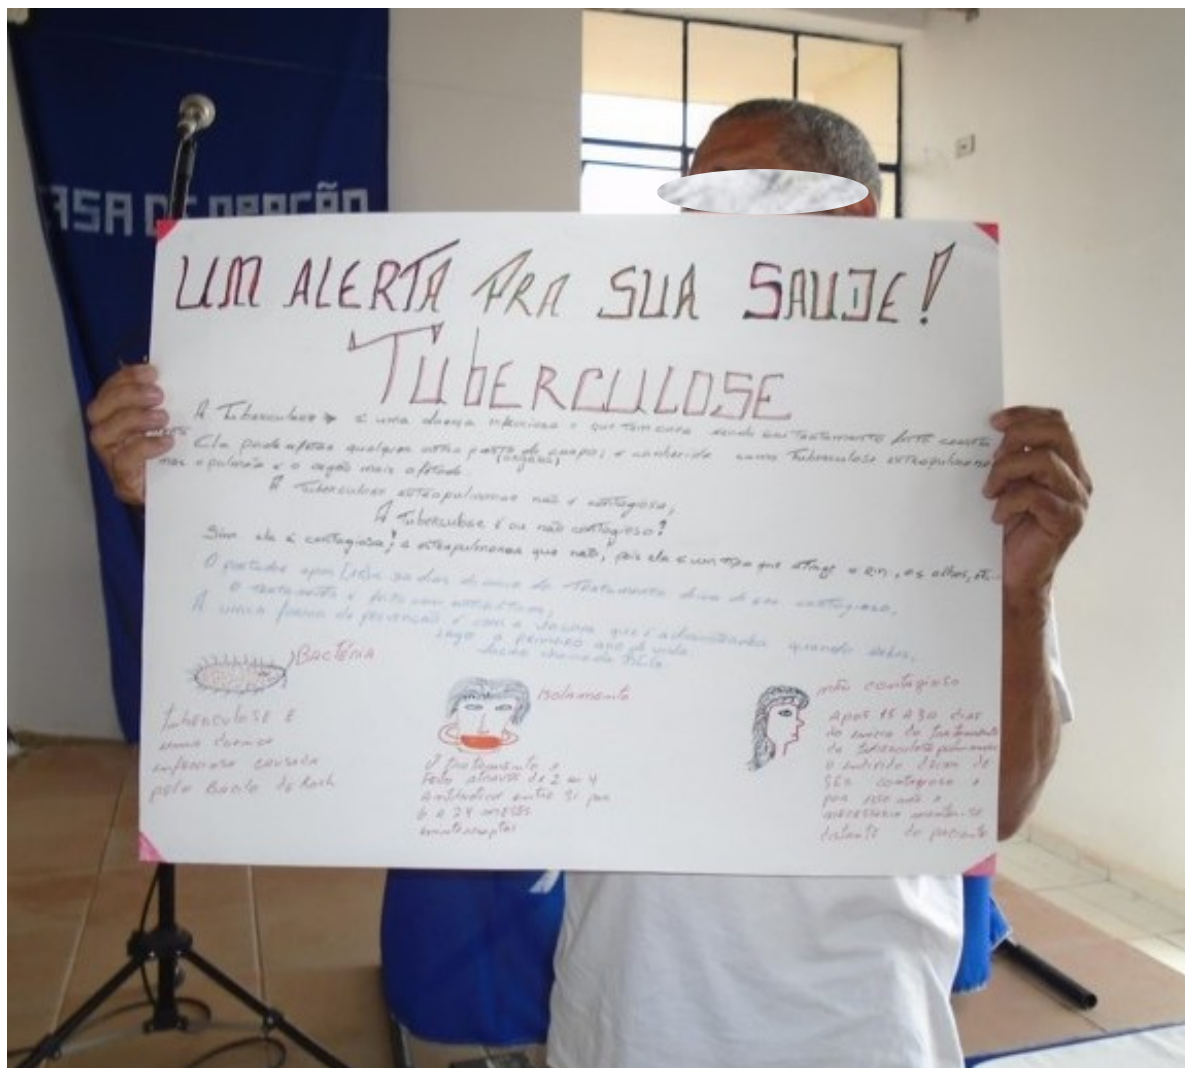 CASA DE ORAÇÃO
UM ALERTA PRA SUA SAUDE!
TUbERCULOSE
A Tuberculose é uma doença infecciosa e que tem cura sendo seu Tratamento feito
Ela pode afetar qualquer outra parte do corpo; e conhecida como Tuberculose extrapulmonar
(orgãos)
mas o pulmão e o orgão mais afetado
A Tuberculose extrapulmonar não é contagiosa;
A Tuberculose é ou não contagiosa?
Sim ela é contagiosa; a extrapulmonar que não, pois ela é um tipo que atinge o rin, os olhos,
O portador apos 30 dias do Tratamento deixa de ser contagioso,
O tratamento é feito com
A unica forma de prevenção é com a vacina que é administrada quando
logo o primeiro ano de vida
BACTÉRIA
Isolamento
não contagioso
Tuberculose E
uma doença
infecciosa causada
pelo Bacilo de Koch
O tratamento e
Feito atraves de 2 a 4
antibiotico entre si por
6 a 24 meses
Apos 15 a 30 dias
do inicio do tratamento
da tuberculose pulmonar
o individo deixa de
ser contagioso e
por isso não e
necessario manter-se
distante do paciente